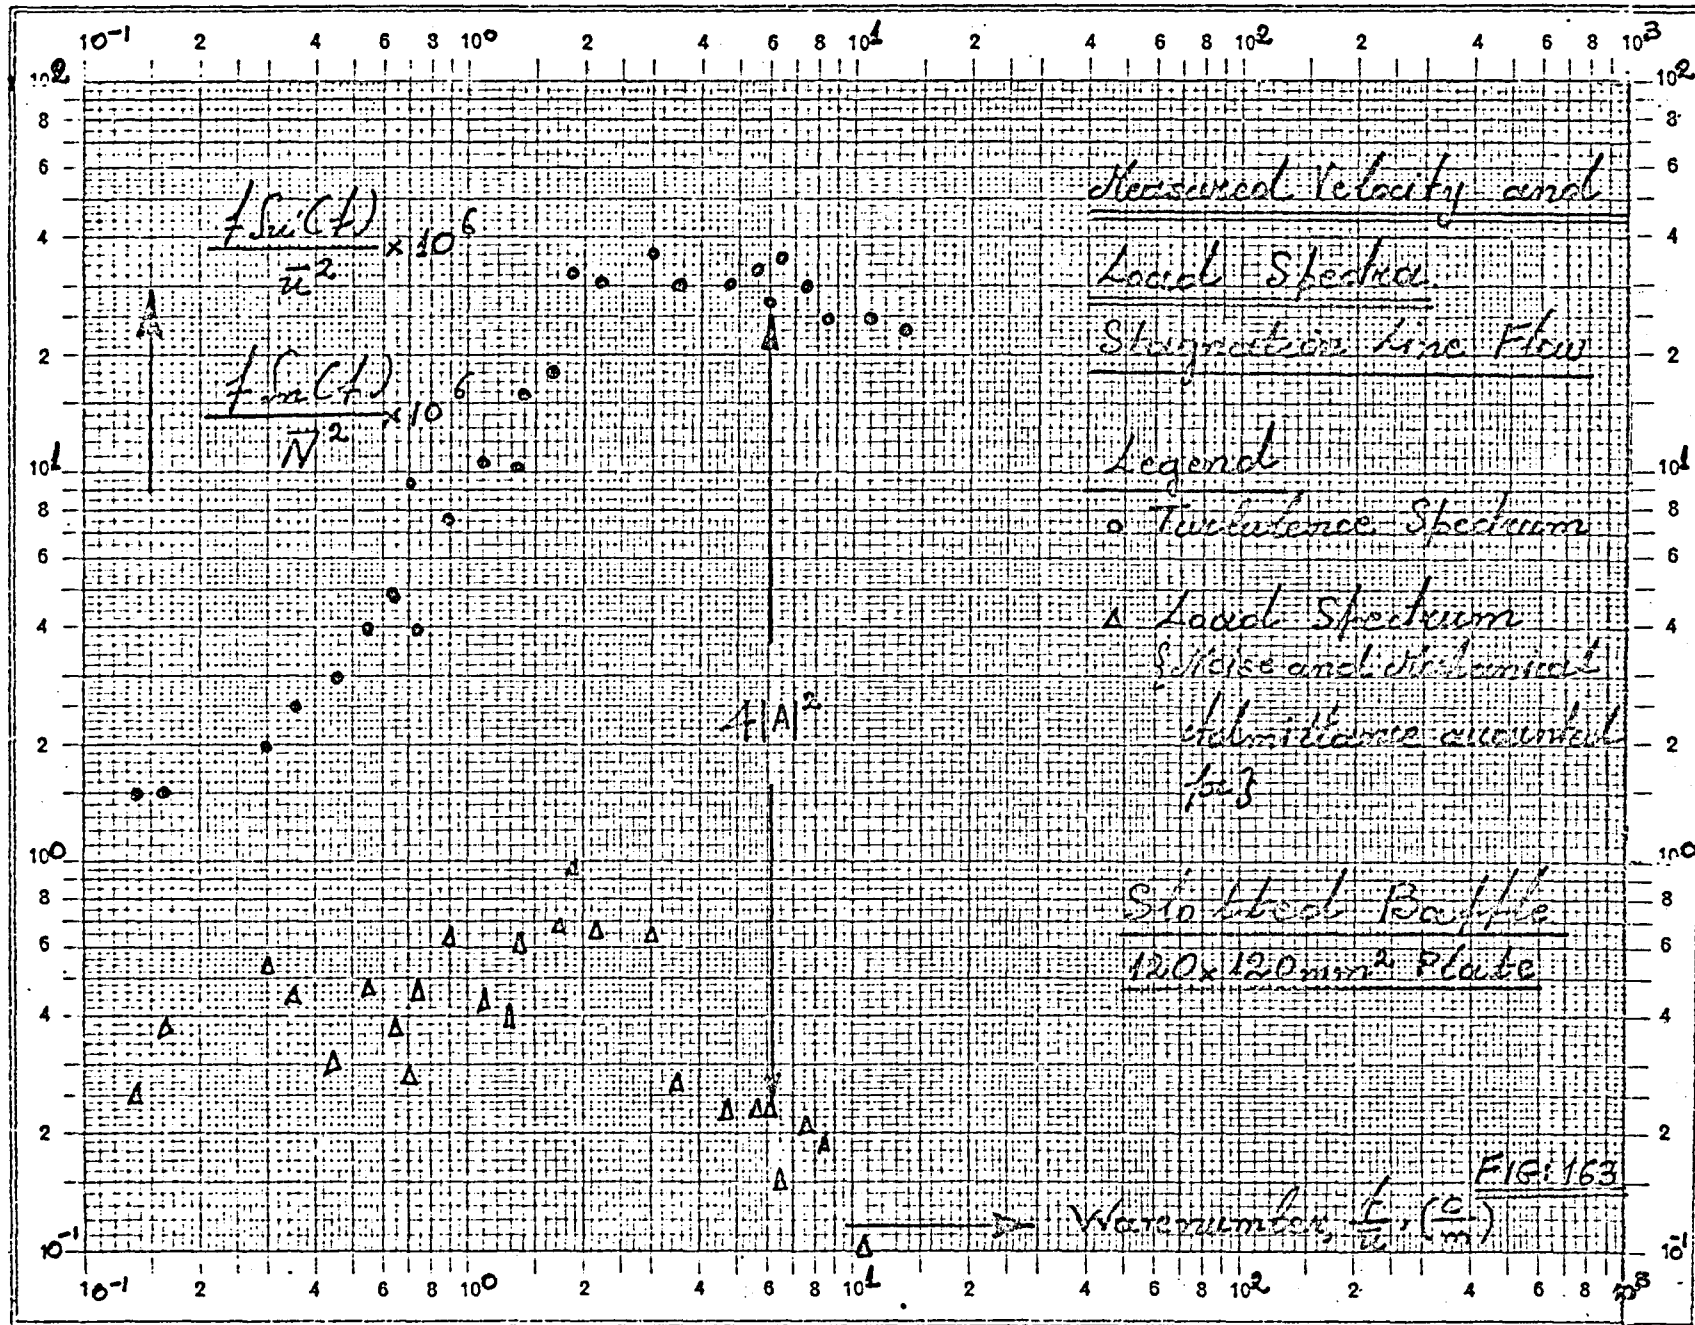 10⁻¹ 2 4 6 8 10⁰ 2 4 6 8 10¹ 2 4 6 8 10² 2 4 6 8 10³
10² 8 6 4 2 10¹ 8 6 4 2 10⁰ 8 6 4 2 10⁻¹
f Su(f) / ū² × 10⁶
f Sn(f) / N̄² × 10⁶
4|A|²
Measured Velocity and
Load Spectra.
Stagnation Line Flow
Legend
o Turbulence Spectrum
Δ Load Spectrum
{Noise and Mechanical
Admittance accounted
for}
Slotted Baffle
120x120mm² Plate
FIG: 163
Wavenumber, f/ū, (c/m)
10² 8 6 4 2 10¹ 8 6 4 2 10⁰ 8 6 4 2 10⁻¹
10⁻¹ 2 4 6 8 10⁰ 2 4 6 8 10¹ 2 4 6 8 10² 2 4 6 8 10³